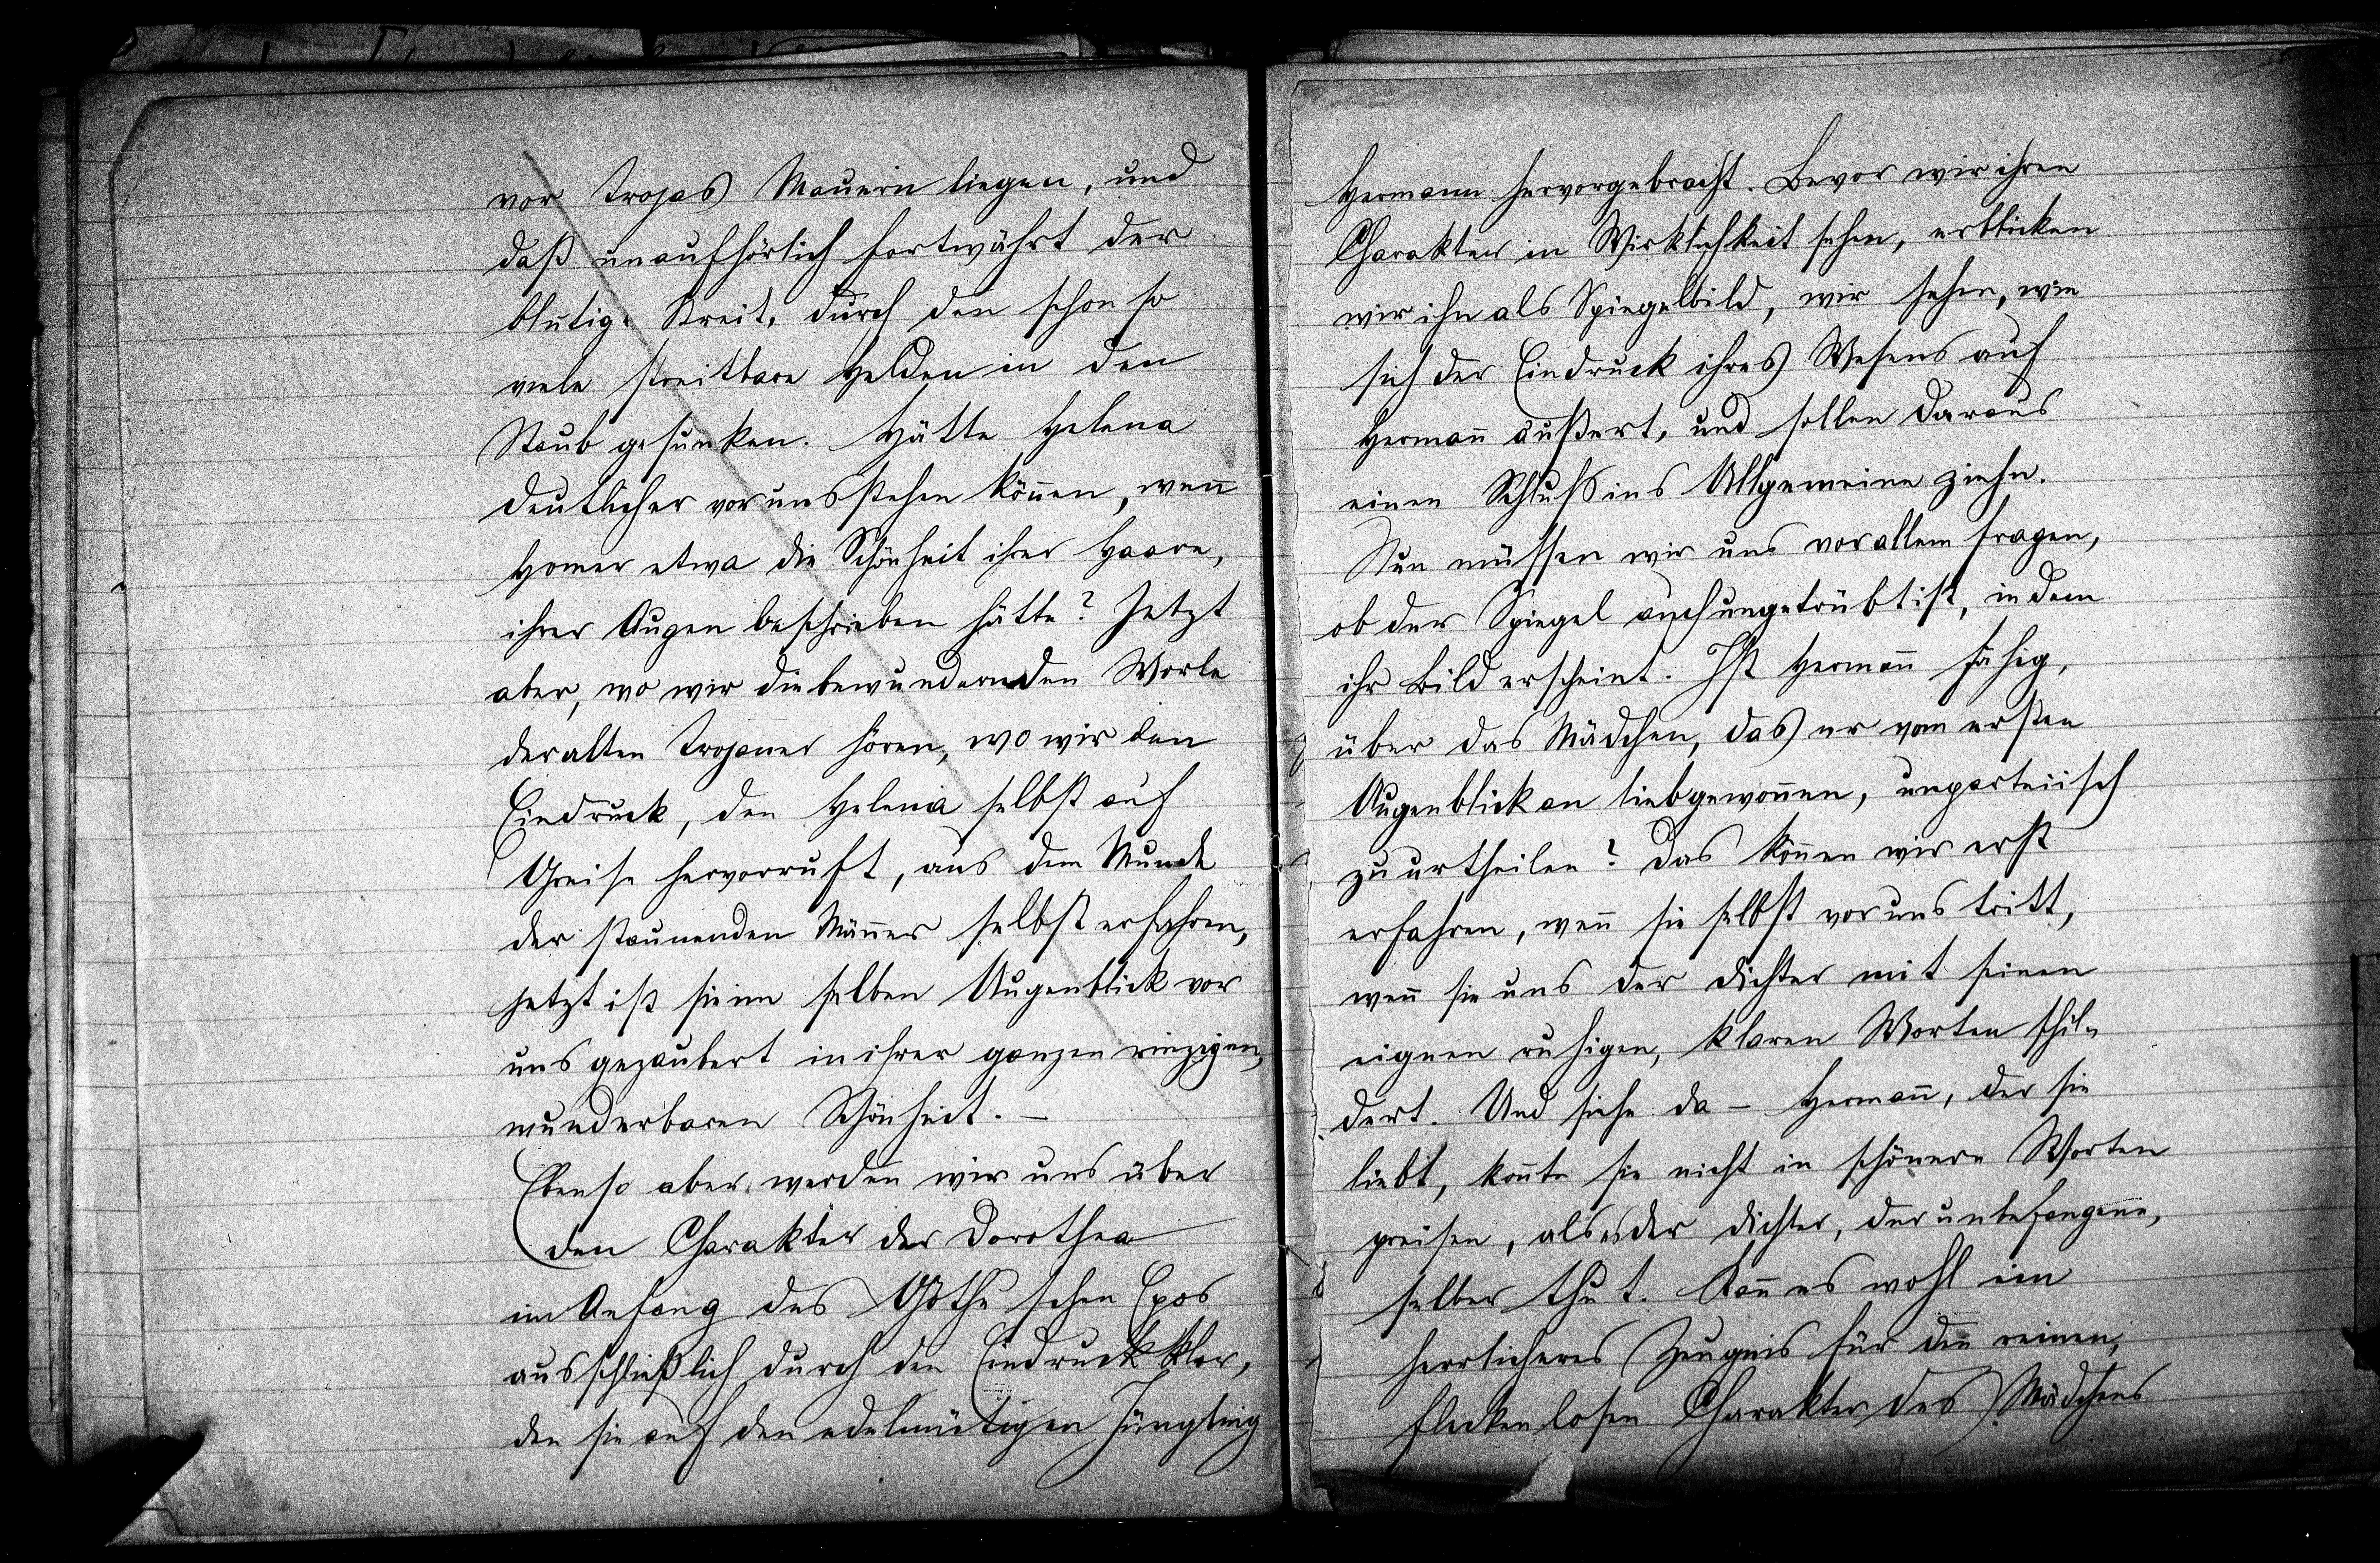 vor Trojas Mauern liegen, und
daß unaufhörlich fortwährt der
blutige Streit, durch den schon so
viele streitbare Helden in den
Staub gesunken. Hätte Helena
deutlicher vor uns stehen können, wenn
Homer etwa die Schönheit ihrer Haare,
ihrer Augen beschrieben hätte? Jetzt
aber, wo wir die bewundernden Worte
der alten Trojaner hören, wo wir den
Eindruck, den Helena selbst auf
Greise hervorruft, aus dem Munde
der staunenden Männer selbst erfahren,
jetzt ist sie im selben Augenblick vor
uns gezaubert in ihrer ganzen einzigen,
wunderbaren Schönheit. –
Ebenso aber werden wir uns über
den Charakter der Dorothea
im Anfang des Göthe'schen Epos
ausschließlich durch den Eindruck klar,
den sie auf den edelmütigen Jüngling
Hermann hervorgebracht. Bevor wir ihren
Charakter in Wirklichkeit sehen, erblicken
wir ihn als Spiegelbild, wir sehen, wie
sich der Eindruck ihres Wesens auf
Hermañ äußert, und sollen daraus
einen Schluß ins Allgemeine ziehn.
Nun müssen wir uns vor allem fragen,
ob der Spiegel auch ungetrübt ist, in dem
ihr Bild erscheint. Ist Hermañ fähig,
über das Mädchen, das er vom ersten
Augenblick an liebgewoñen, unparteiisch
zu urtheilen? Das köñen wir erst
erfahren, weñ sie selbst vor uns tritt,
weñ sie uns der Dichter mit seinen
eignen ruhigen, klaren Worten schil-
dert. Und siehe da – Hermañ, der sie
liebt, koñte sie nicht in schönern Worten
preisen, als es der Dichter, der unbefangene,
selber thut. Kañ es wohl ein
herrlicheres Zeugnis für den reinen,
fleckenlosen Charakter des Mädchens